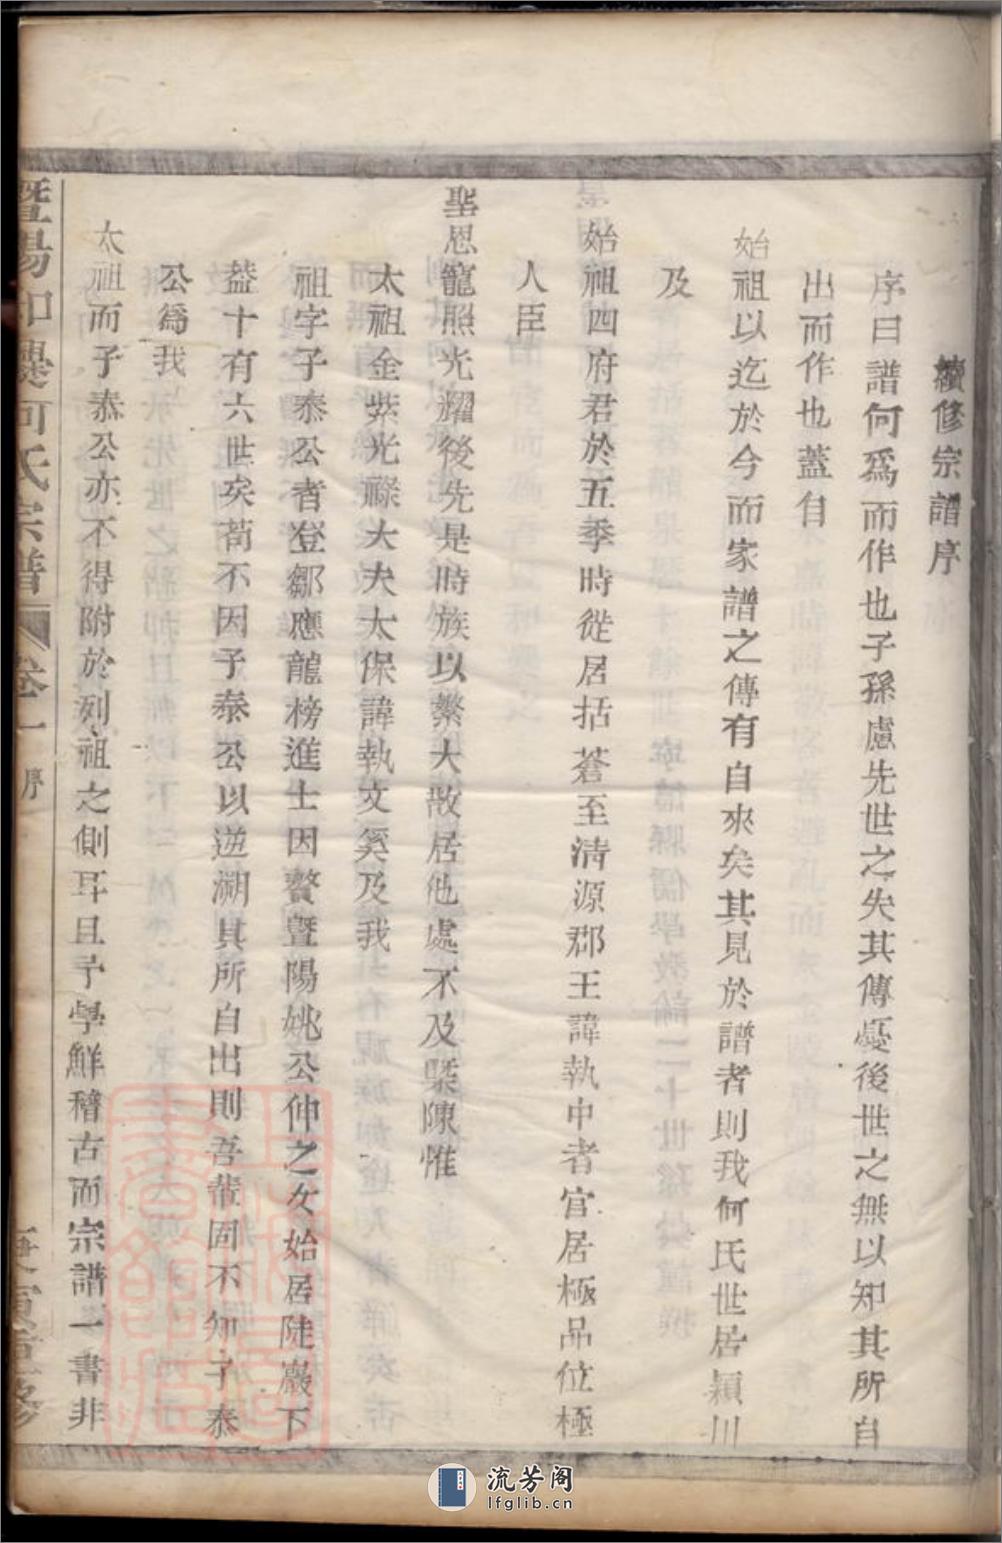 續修宗譜序
序曰譜何爲而作也子孫慮先世之失其傳憂後世之無以知其所自
出而作也蓋自
始祖以迄於今而家譜之傳有自來矣其見於譜者則我何氏世居潁川
及
始祖四府君於五季時從居括蒼至清源郡王諱執中者官居極品位極
人臣
聖恩寵照光耀後先是時族以繁大散居他處不及槩陳惟
太祖金紫光祿大夫太保諱執文奚及我
祖字子泰公者登鄒應龍榜進士因贅暨陽姚公仲之女始居陡巖下
葢十有六世矣茍不因子泰公以遡溯其所自出則吾輩固不知子泰
公爲我
太祖而子泰公亦不得附於列祖之側耳且予學鮮稽古而宗譜一書非
暨陽 何氏宗譜
卷一
序
庚寅重修
流芳阁
lfglib.cn